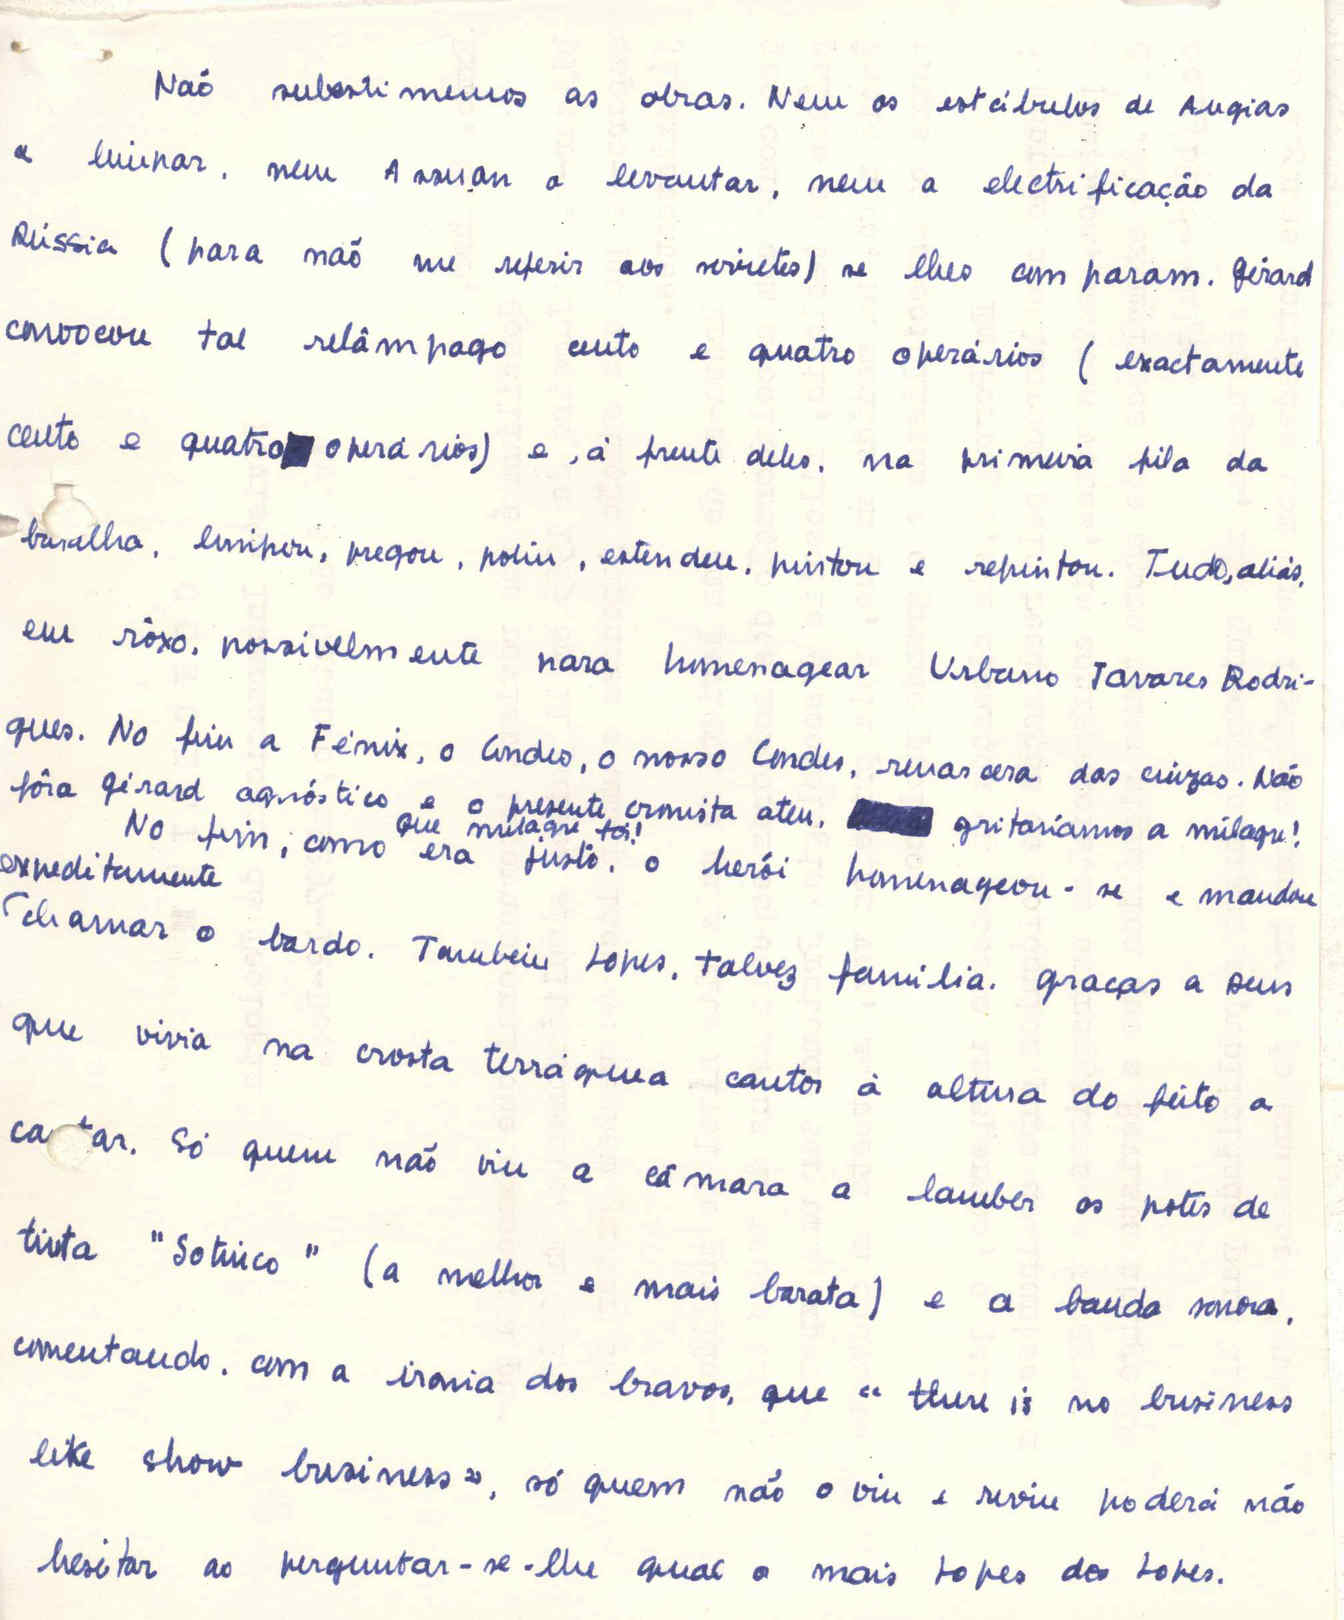 Não subestimemos as obras. Nem os estábulos de Augias
a limpar, nem Assuan a levantar, nem a electrificação da
Rússia (para não me referir aos sovietes) se lhes comparam. Gérard
convocou tal relâmpago cento e quatro operários (exactamente
cento e quatro operários) e, à frente deles, na primeira fila da
batalha, limpou, pregou, poliu, estendeu, pintou e repintou. Tudo, aliás,
em rôxo, possivelmente para homenagear Urbano Tavares Rodri-
gues. No fim a Fénix, o Condes, o nosso Condes, renascera das cinzas. Não
fôra Gérard agnóstico e o presente cronista ateu, gritaríamos a milagre!
que milagre foi!
No fim, como era justo, o herói homenageou-se e mandou
expeditamente
chamar o bardo. Também Lopes, talvez família. Graças a Deus
que vivia na crosta terráquea cantor à altura do feito a
cantar. Só quem não viu a câmara a lamber os potes de
tinta "Sotinco" (a melhor e mais barata) e a banda sonora,
comentando, com a ironia dos bravos, que "there is no business
like show business", só quem não o viu e reviu poderá não
hesitar ao perguntar-se-lhe qual o mais Lopes dos Lopes.